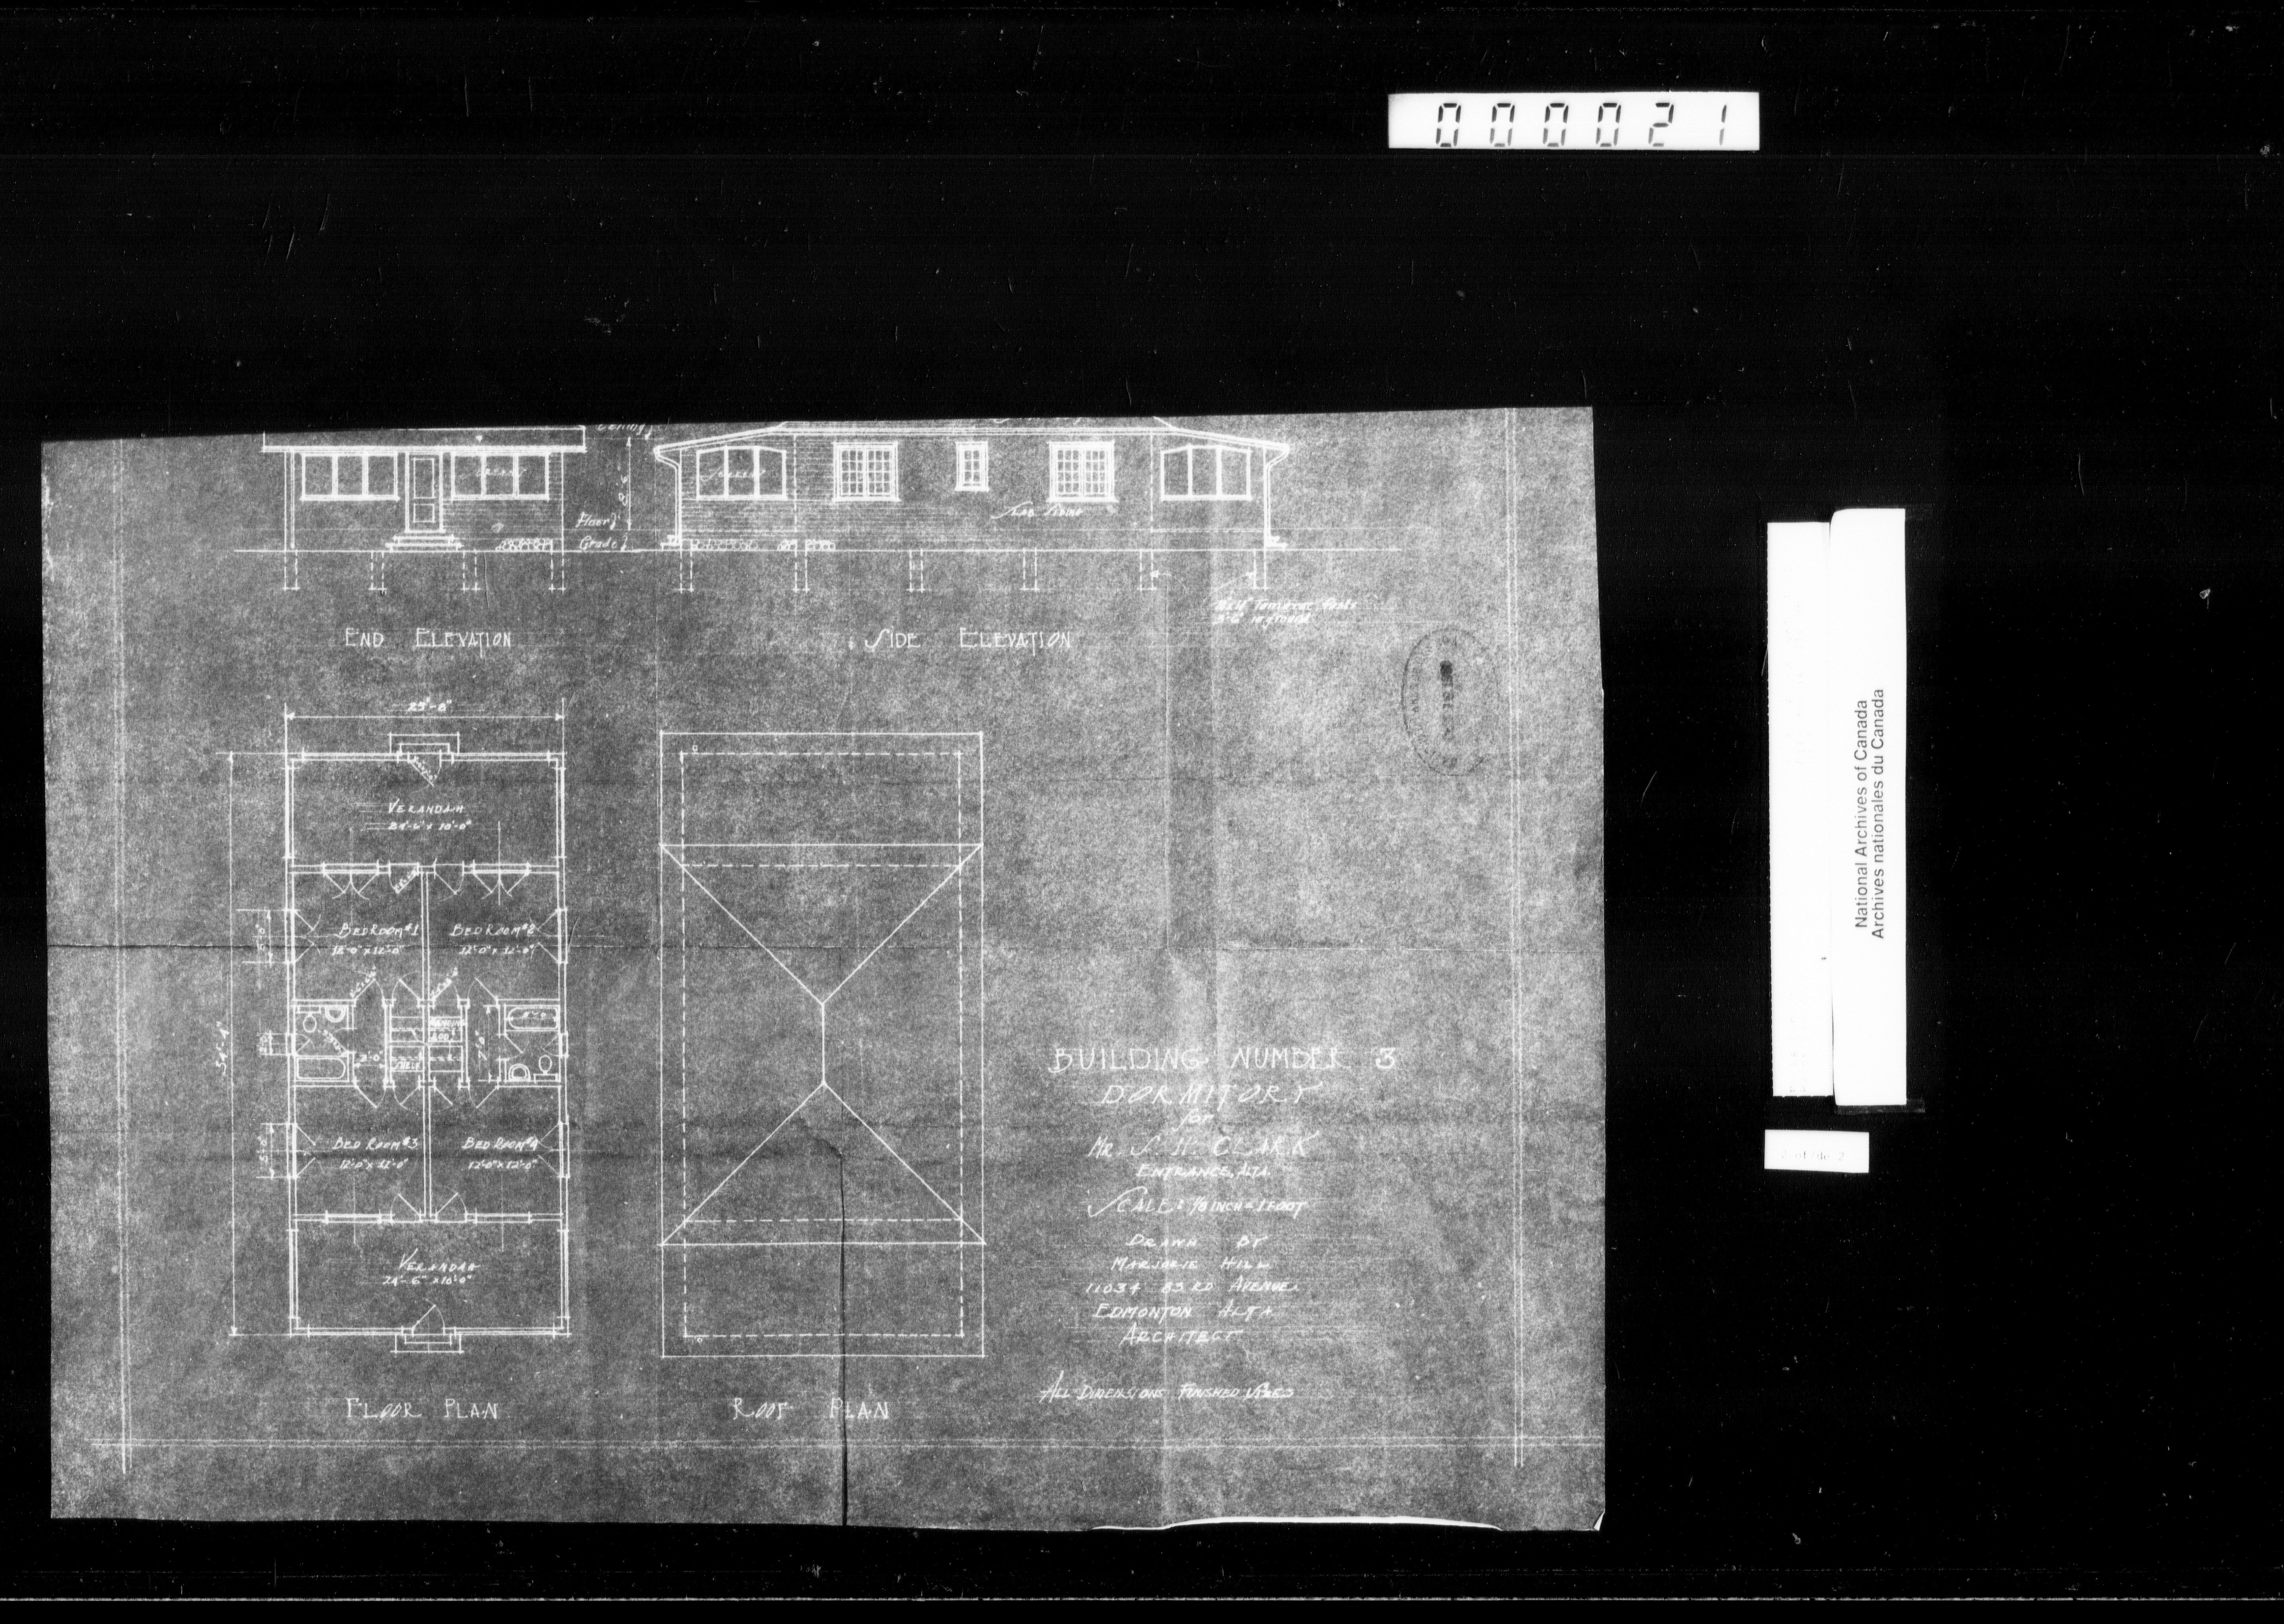 000021
Ceiling
Screen
Screen
8'-6"
Floor
Grade
Slab Siding
Tamarac Posts
3'-6" in ground
END ELEVATION
SIDE ELEVATION
25'-8"
VERANDAH
24'-6" x 10'-0"
BEDROOM #1
12'-0" x 12'-0"
BEDROOM #2
12'-0" x 12'-0"
5'-0"
54'-4"
3'-0"
SHELF
BED ROOM #3
12'-0" x 12'-0"
BED ROOM #4
12'-0" x 12'-0"
5'-0"
VERANDAH
24'-6" x 10'-0"
FLOOR PLAN
ROOF PLAN
BUILDING NUMBER 3
DORMITORY
for
MR. S. H. CLARK
ENTRANCE, ALTA.
SCALE: 1/8 INCH = 1 FOOT
DRAWN BY
MARJORIE HILL
11034 83 RD AVENUE
EDMONTON ALTA
ARCHITECT
ALL DIMENSIONS FINISHED SIZES
National Archives of Canada
Archives nationales du Canada